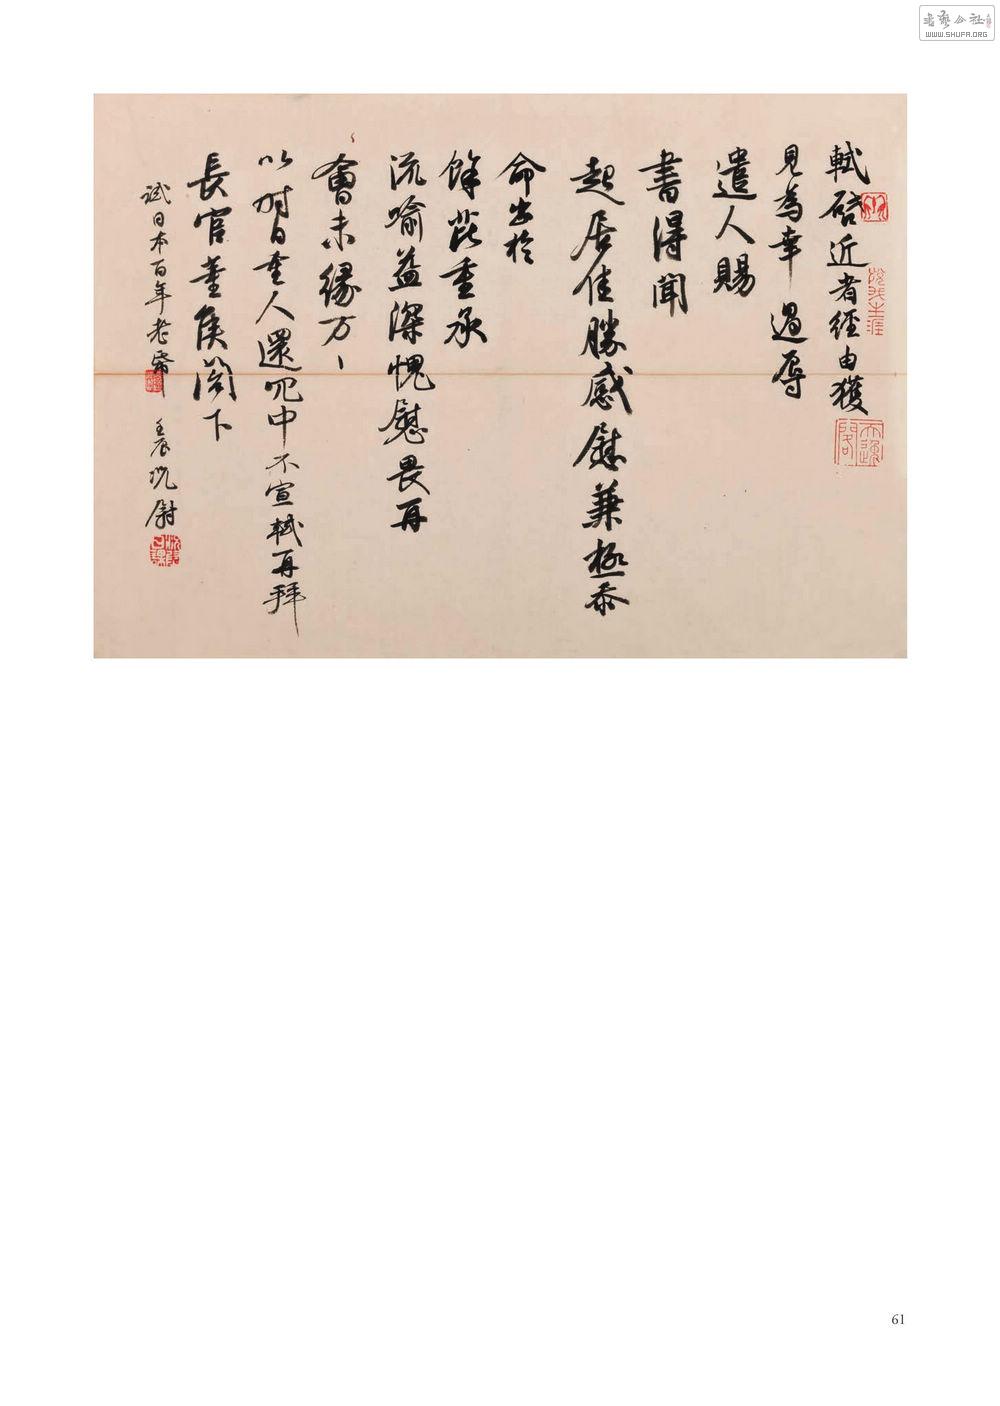 軾啓近者經由獲
見為幸過辱
遣人賜
書得聞
起居佳勝感慰兼極忝
命出於
餘芘重承
流喻益深愧慰畏再
會未緣万丶
以時自重人還冗中不宣軾再拜
長官董侯閣下
試日本百年老紙
壬辰 沈尉
書藝公社
WWW.SHUFA.ORG
61